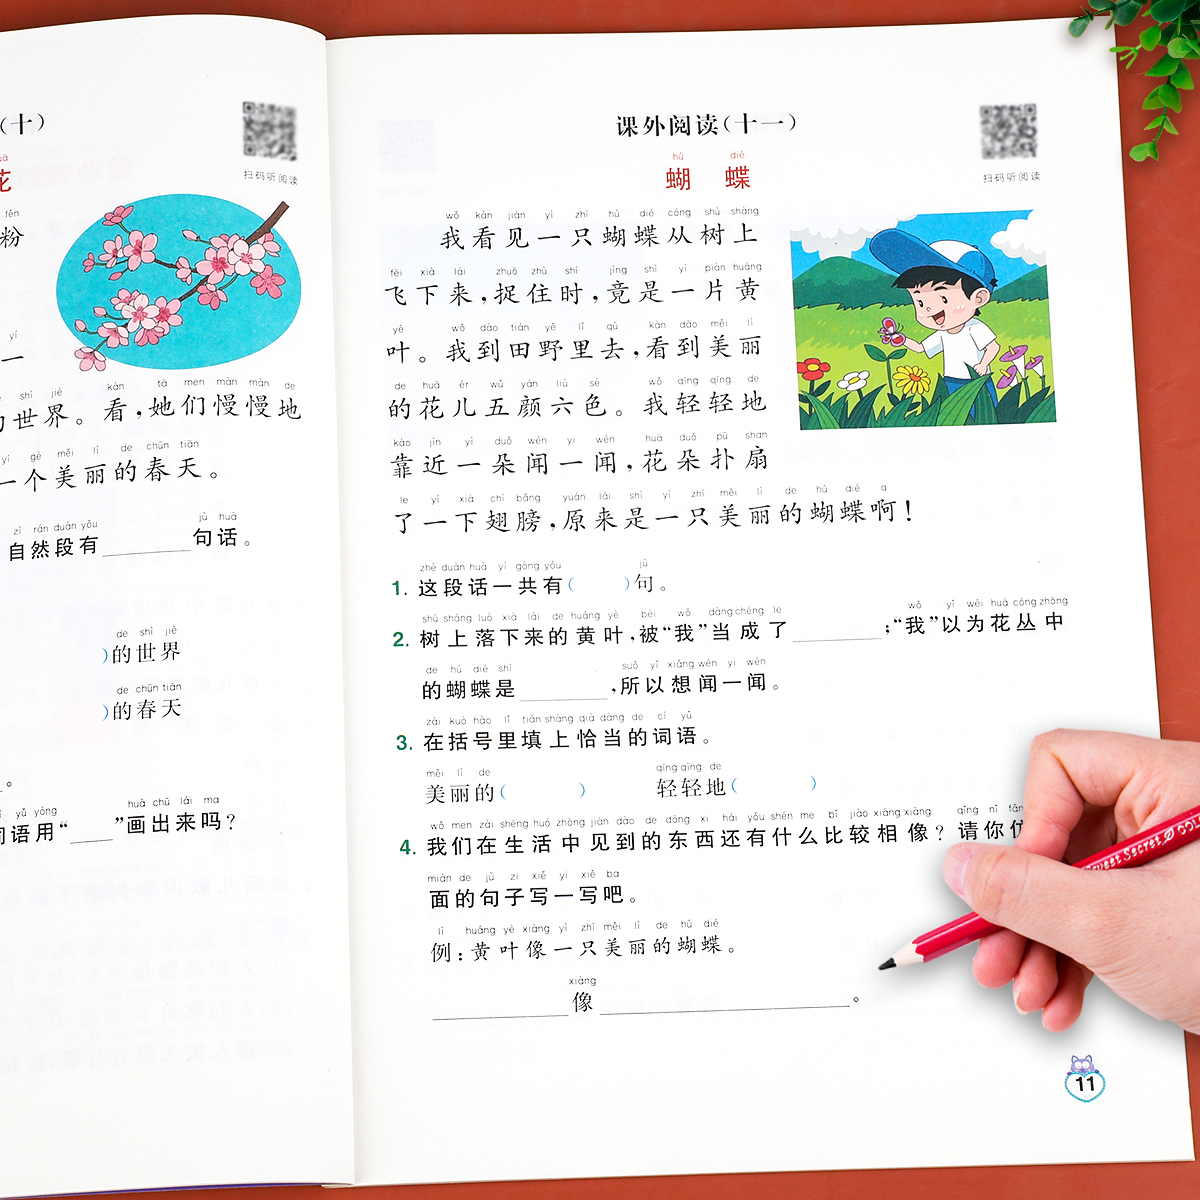 (十)
花
扫码听阅读
fěn
粉
yí
一
shì jiè kàn tā men màn màn de
世界。看,她们慢慢地
yí gè měi lì de chūn tiān
一个美丽的春天。
zì rán duàn yǒu jù huà
自然段有________句话。
de shì jiè
)的世界
de chūn tiān
)的春天
。
yǔ yòng huà chū lái ma
词语用“____”画出来吗?
课外阅读(十一)
扫码听阅读
hú dié
蝴蝶
wǒ kàn jiàn yì zhī hú dié cóng shù shàng
我看见一只蝴蝶从树上
fēi xià lái zhuō zhù shí jìng shì yí piàn huáng
飞下来,捉住时,竟是一片黄
yè wǒ dào tián yě lǐ qù kàn dào měi lì
叶。我到田野里去,看到美丽
de huā ér wǔ yán liù sè wǒ qīng qīng de
的花儿五颜六色。我轻轻地
kào jìn yì duǒ wén yi wén huā duǒ pū shan
靠近一朵闻一闻,花朵扑扇
le yí xià chì bǎng yuán lái shì yì zhī měi lì de hú dié a
了一下翅膀,原来是一只美丽的蝴蝶啊!
zhè duàn huà yí gòng yǒu jù
1. 这段话一共有( )句。
shù shàng luò xià lái de huáng yè bèi wǒ dàng chéng le wǒ yǐ wéi huā cóng zhōng
2. 树上落下来的黄叶,被“我”当成了________;“我”以为花丛中
de hú dié shì suǒ yǐ xiǎng wén yi wén
的蝴蝶是________,所以想闻一闻。
zài kuò hào lǐ tián shàng qià dàng de cí yǔ
3. 在括号里填上恰当的词语。
měi lì de qīng qīng de
美丽的( ) 轻轻地( )
wǒ men zài shēng huó zhōng jiàn dào de dōng xi hái yǒu shén me bǐ jiào xiāng xiàng qǐng nǐ fǎng
4. 我们在生活中见到的东西还有什么比较相像?请你仿
miàn de jù zi xiě yi xiě ba
面的句子写一写吧。
lì huáng yè xiàng yì zhī měi lì de hú dié
例:黄叶像一只美丽的蝴蝶。
xiàng
____________像______________________。
Sweet Secret
11